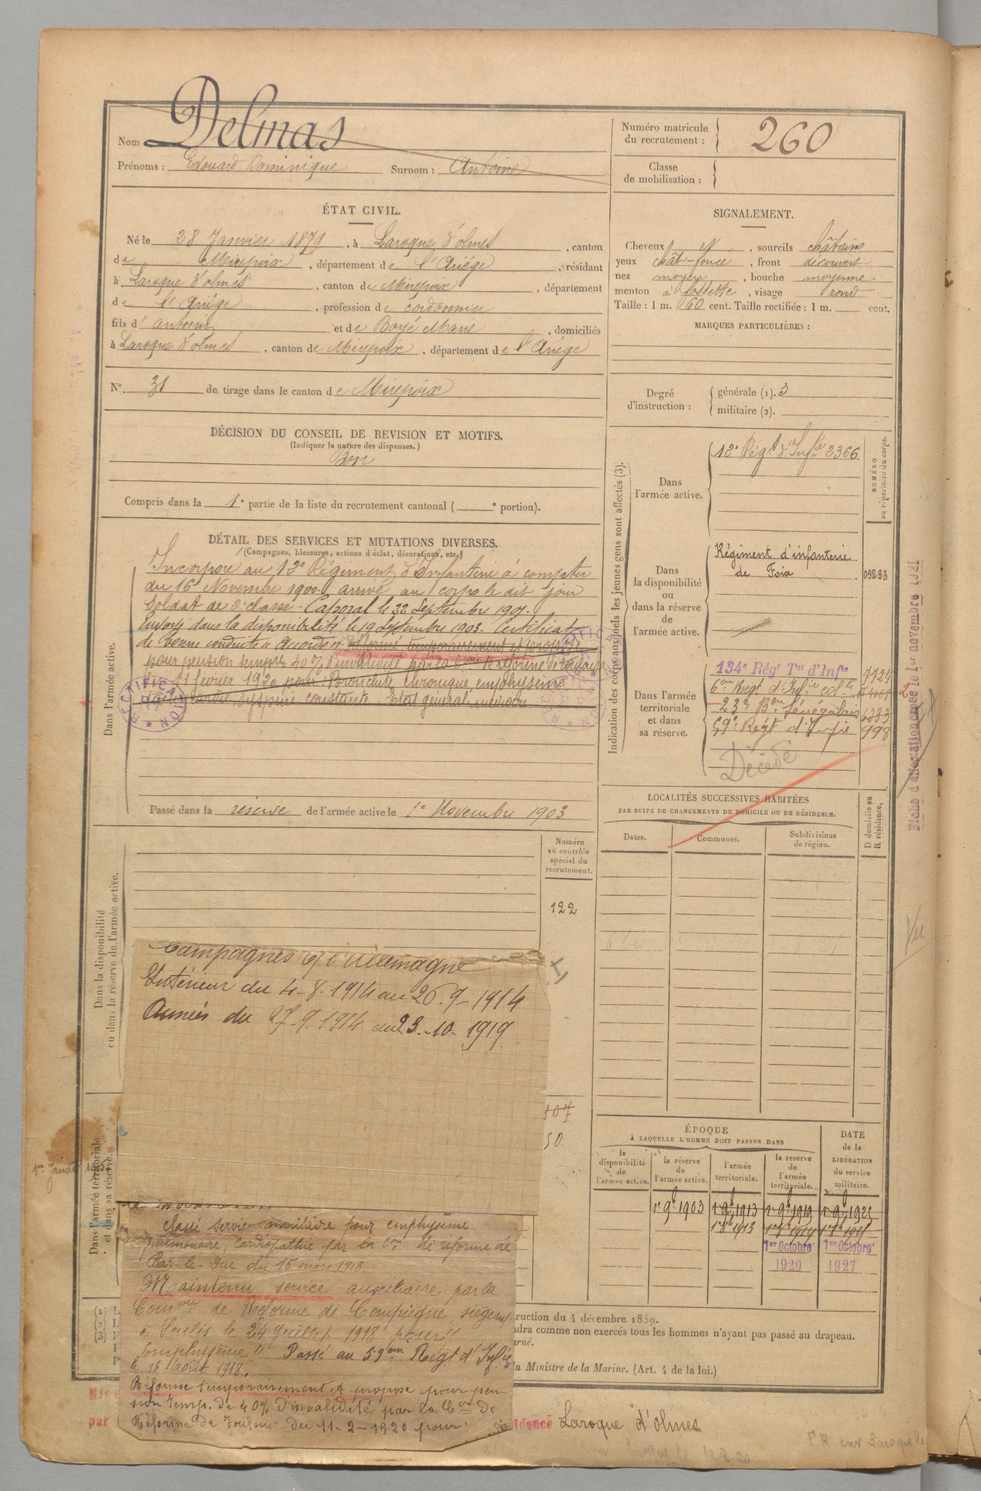 Nom Delmas
Prénoms : Edouard Dominique Surnom : Antoine
Numéro matricule du recrutement : 260
Classe de mobilisation :
ÉTAT CIVIL.
Né le 28 Janvier 1879, à Laroque d'olmes, canton
de Mirepoix, département de l'Ariége, résidant
à Laroque d'olmes, canton de Mirepoix, département
de l'Ariége, profession de cordonnier
fils d' antoine et de Boyé Marie, domiciliés
à Laroque d'olmes, canton de Mirepoix, département de l'Ariége
N° 31 de tirage dans le canton de Mirepoix
SIGNALEMENT.
Cheveux N, sourcils châtains
yeux chât-foncé, front découvert
nez moyen, bouche moyenne
menton à fossette, visage rond
Taille : 1 m. 60 cent. Taille rectifiée : 1 m. cent.
MARQUES PARTICULIÈRES :
Degré d'instruction :
générale (1). 3
militaire (2).
DÉCISION DU CONSEIL DE REVISION ET MOTIFS.
(Indiquer la nature des dispenses.)
Bon
Compris dans la 1e partie de la liste du recrutement cantonal ( e portion).
DÉTAIL DES SERVICES ET MUTATIONS DIVERSES.
(Campagnes, blessures, actions d'éclat, décorations, etc.)
Dans l'armée active.
Incorporé au 12e Régiment d'Infanterie à compter
du 16 Novembre 1900 arrivé au corps le dit jour
Soldat de 2e classe. Caporal le 22 Septembre 1901.
Envoyé dans la disponibilité le 19 Septembre 1903. Certificat
de bonne conduite accordé. Réformé temporairement et proposé
pour pension temporaire 40% d'invalidité par la Con de réforme de Toulouse
du 11 février 1920 pour Bronchite chronique emphysème
dyspnée constante. Etat général médiocre
RECTIFICATION
RECTIFICATION
Passé dans la réserve de l'armée active le 1er Novembre 1903
Indication des corps auxquels les jeunes gens sont affectés (3).
NUMÉRO au répertoire du corps.
Dans l'armée active.
12e Régt d'Infie 2366
Dans la disponibilité ou dans la réserve de l'armée active.
Régiment d'infanterie
de Foix 09283
Dans l'armée territoriale et dans sa réserve.
134e Régt Tal d'Infie
6eme Régt d'Infie colle
23e Bon Sénégalais
59e Régt d'Infie 998
Décédé
Fiche d'affectation créée le 1er novembre 1921
LOCALITÉS SUCCESSIVES HABITÉES
PAR SUITE DE CHANGEMENTS DE DOMICILE OU DE RÉSIDENCE.
Dates. Communes. Subdivisions de région. D domicile ou R résidence.
Vu
Dans la disponibilité ou dans la réserve de l'armée active.
Numéro au contrôle spécial du recrutement.
122
Campagnes c/ l'Allemagne
Intérieur du 4-8-1914 au 26-9-1914
Armées du 27-9-1914 au 23-10-1919
Dans l'armée territoriale et dans sa réserve.
classé service auxiliaire pour emphysème
pulmonaire, cardiopathie par la Con de réforme de
Bar-le-Duc du 15 mars 1918
Maintenu service auxiliaire par la
Comon de Réforme de Compiègne, siégeant
à Senlis le 24 Juillet 1918 pour "
emphysème". Passé au 59eme Régt d'Infie
le 16 Août 1918.
Réformé temporairement et proposé pour pen-
sion temp. de 40% d'invalidité par la Con de
Réforme de Toulouse du 11-2-1920 pour :
ÉPOQUE
À LAQUELLE L'HOMME DOIT PASSER DANS
la disponibilité de l'armée active. la réserve de l'armée active. l'armée territoriale. la réserve de l'armée territoriale.
DATE de la LIBÉRATION du service militaire.
1er 9bre 1903 1er 9bre 1913 1er 9bre 1919 1er 9bre 1925
1er Octobre 1920 1er Octobre 1927
ruction du 4 décembre 1889.
ndra comme non exercés tous les hommes n'ayant pas passé au drapeau.
u Ministre de la Marine. (Art. 4 de la loi.)
Laroque d'olmes